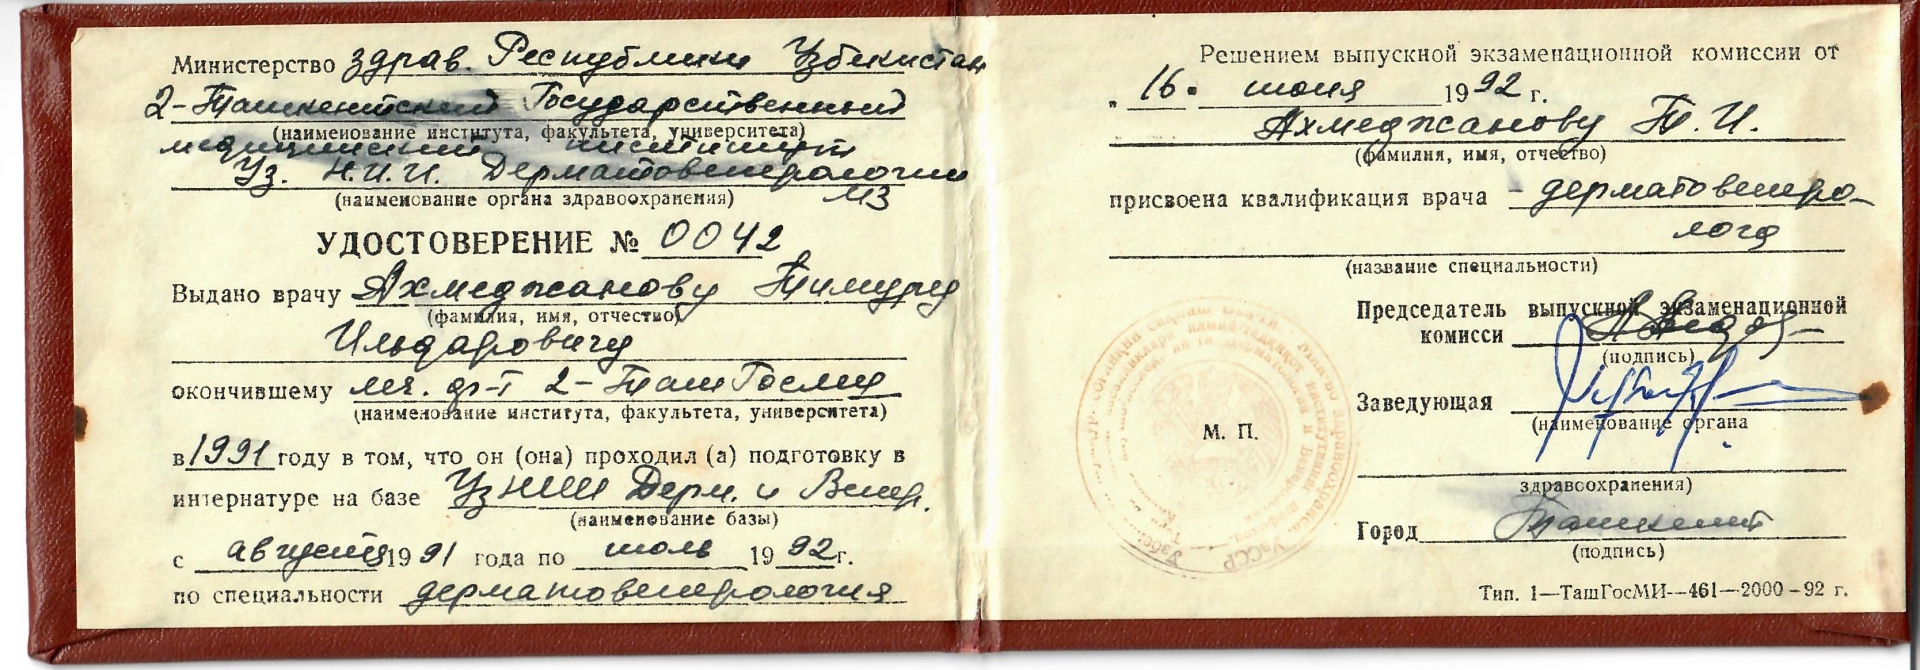 Министерство здрав. Республики Узбекистан
2-Ташкентский Государственный
(наименование института, факультета, университета)
медицинский институт
Уз. Н.И.И. Дерматовенерологии
(наименование органа здравоохранения) МЗ
УДОСТОВЕРЕНИЕ № 0042
Выдано врачу Ахмеджанову Тимуру
(фамилия, имя, отчество)
Ильдаровичу
окончившему леч. ф-т 2-ТашГосми
(наименование института, факультета, университета)
в 1991 году в том, что он (она) проходил (а) подготовку в
интернатуре на базе УзНИИ Дерм. и Венер.
(наименование базы)
с август 1991 года по июль 1992 г.
по специальности дерматовенерология
Решением выпускной экзаменационной комиссии от
„ 16 " июня 1992 г.
Ахмеджанову Т. И.
(фамилия, имя, отчество)
присвоена квалификация врача - дерматовенеро-
лога
(название специальности)
Председатель выпускной экзаменационной
комисси
(подпись)
Заведующая
(наименование органа
здравоохранения)
М. П.
УзССР
Город Ташкент
(подпись)
Тип. 1—ТашГосМИ—461—2000-92 г.